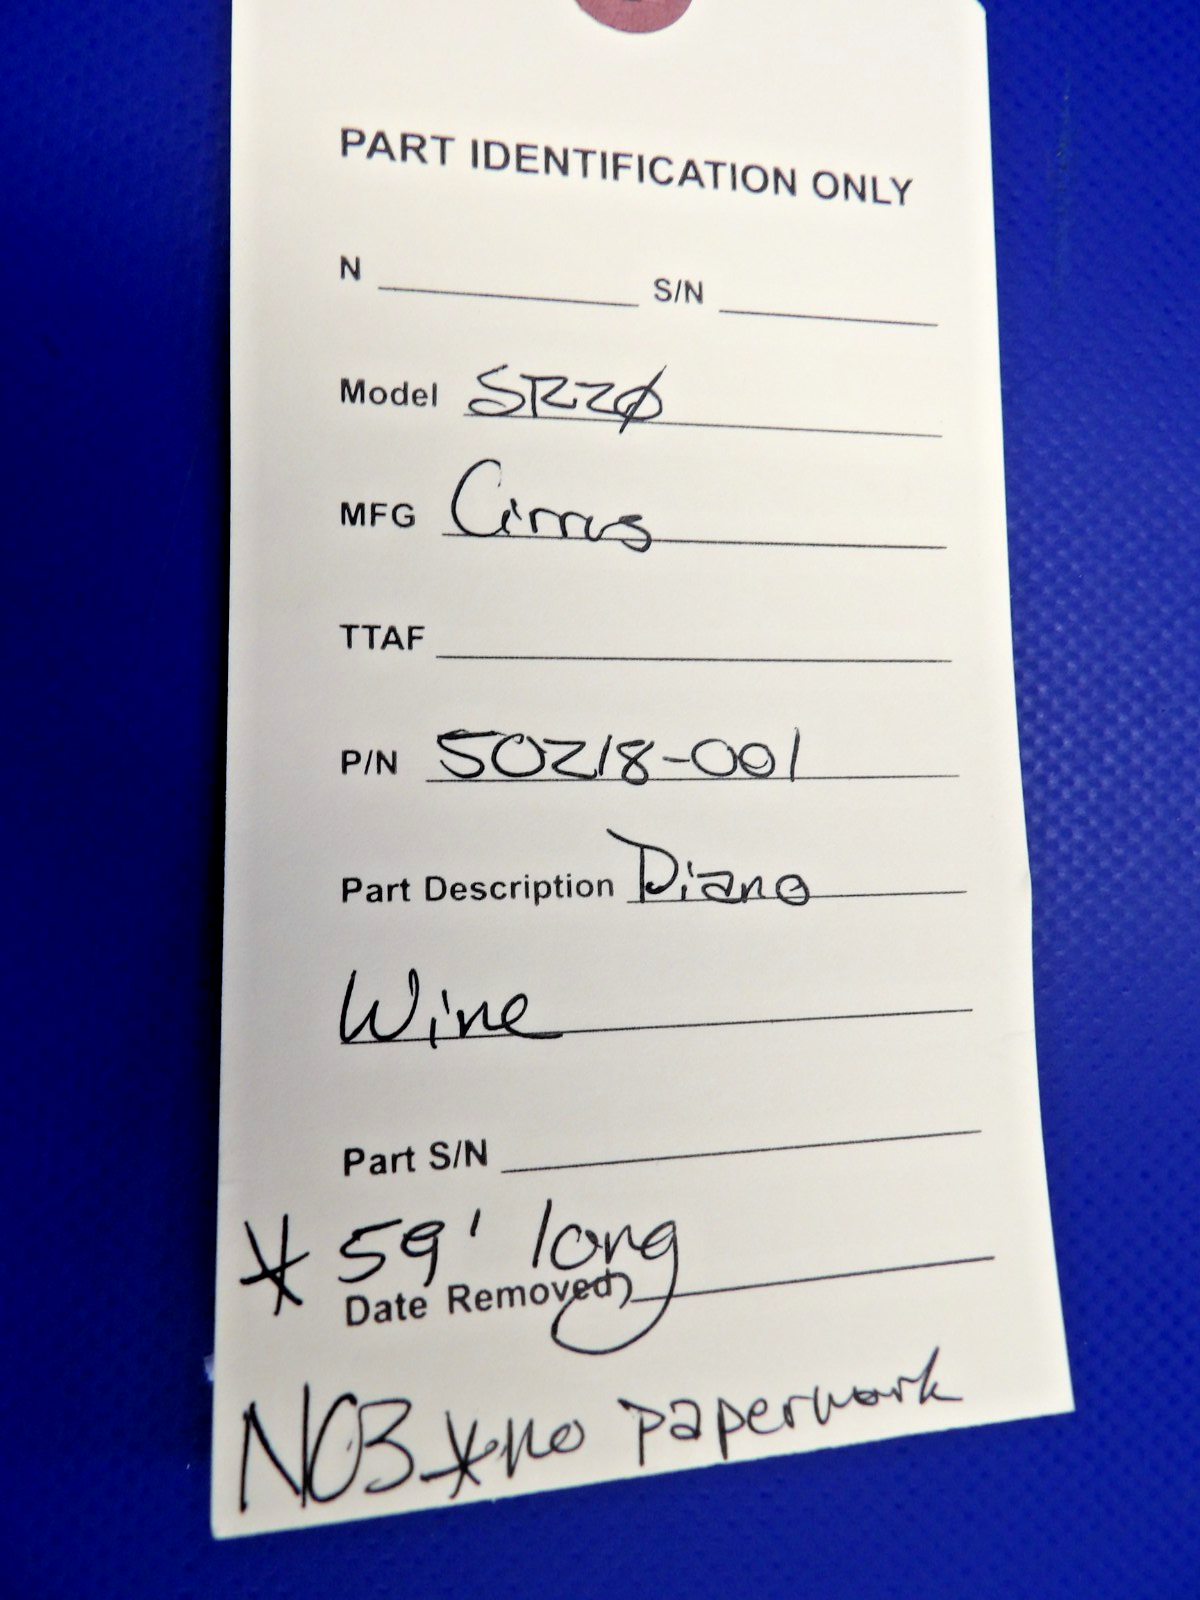 PART IDENTIFICATION ONLY
N S/N
Model SR2Ø
MFG Cirrus
TTAF
P/N 50218-001
Part Description Piano
Wire
Part S/N
* 59' long
Date Removed
NOB *no paperwork